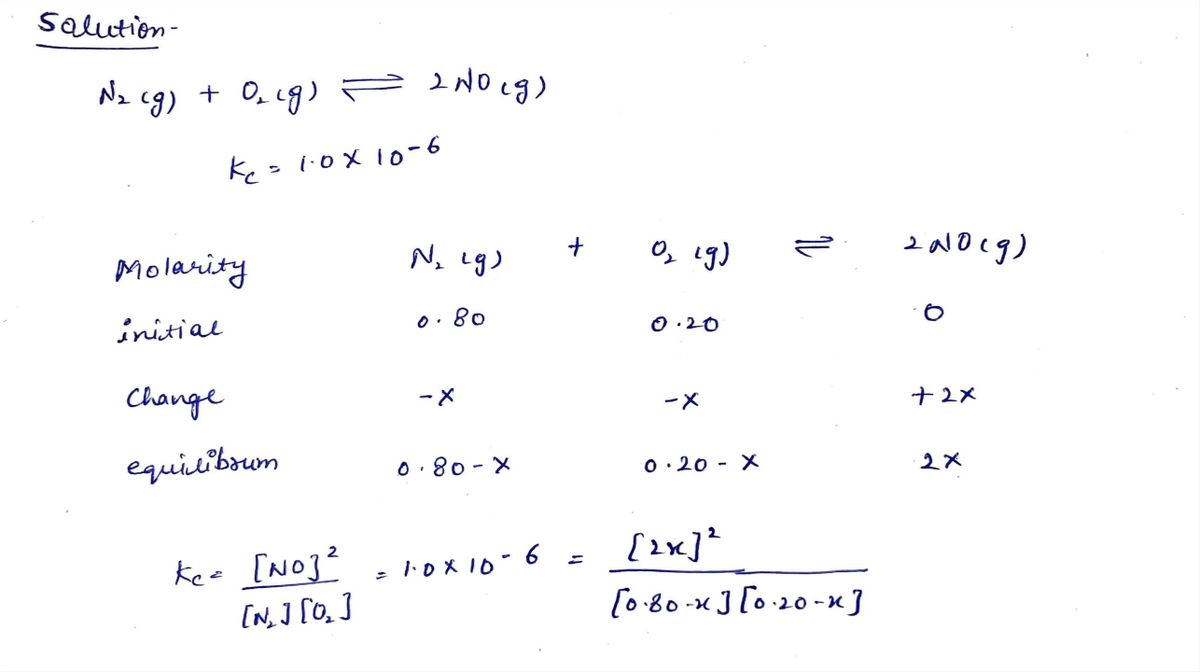 Solution-
N₂ (g) + O₂ (g) ⇌ 2 NO (g)
Kc = 1.0 X 10⁻⁶
Molarity N₂ (g) + O₂ (g) ⇌ 2 NO (g)
initial 0.80 0.20 0
Change -x -x +2x
equilibrum 0.80-x 0.20-x 2x
Kc = [NO]² / [N₂][O₂] = 1.0 X 10⁻⁶ = [2x]² / [0.80-x][0.20-x]